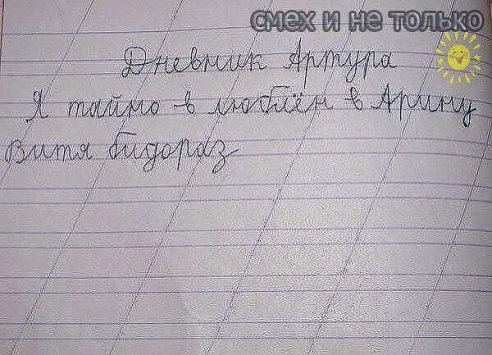 смех и не только
Дневник Артура
Я тайно в люблён в Арину
Витя бидораз